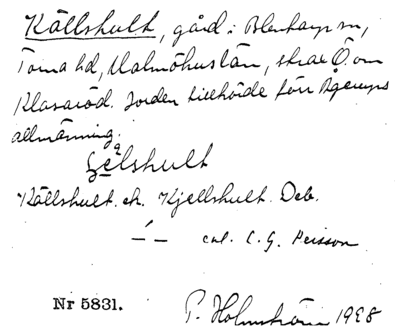 Källshult, gård i Blentarps sn,
Torna hd, Malmöhus län, strax Ö. om
Klasaröd. Jorden tillhörde förr Ågerups
allmänning.
Källshult. ek. Kjellshult. Deb.
— " — cal. C. G. Persson
Nr 5831. P. Holmström 1928